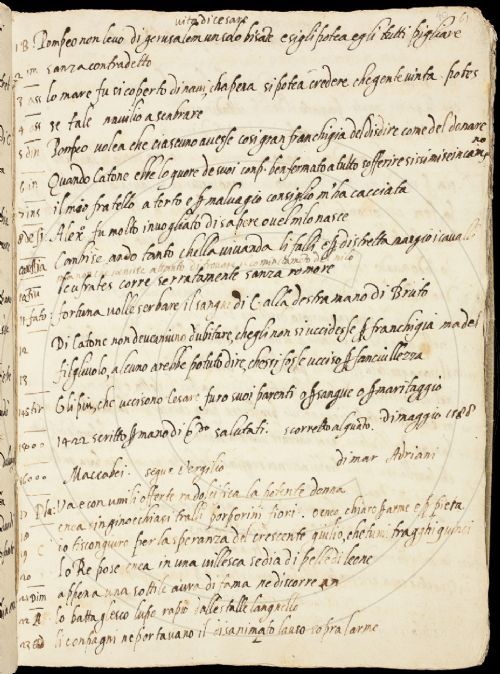 vita di cesare
61
1 B. Pompeo non levo di gerusalem un solo bisate e si gli potea egli tutti pigliare
2 im sanza contradetto
3 ass lo mare fu si coperto di navi, ch apena si potea credere che gente vinta potes
4 ass se fale navilio asenbrare
5 din Pompeo volea che ciascuno avesse cosi gran franchigia del disdire come del donare
no
6 in Quando Catone ebbe lo quore de suoi conp. ben formato a tutto sofferire si si mise in cam
7 ins il mio fratello a torto e per malvagio consiglio m'ha cacciata
8 desi Alex.o fu molto invogliato di sapere ove l nilo nasce
Cambise ando tanto che lla vivanda li falli e per distretta mangio i cavalli
10 Fiu eufrates corre serratamente sanza romore
11 fato: fortuna volle serbare il sangue di C. alla destra mano di Bruto
12 Di Catone non deve niuno dubitare, che gli non si uccidesse per franchigia ma del
13 figluolo, alcuno arebbe potuto dire, che si fosse ucciso per fanciullezza
14 str Gli piu, che uccisono Cesare furo suoi parenti o per sangue o per maritaggio
15000 1422 scritto per mano di salutati. scorretto alquanto. di maggio 1588
16000 Maccabei. segue Vergilio di mar Adriani
17 Pla: Va e con umili offerte radolcisca la potente donna
18 enea singinocchiasi tralli porporini fiori.
19 C io ti scongiuro per la speranza del crescente giulio, che tu mi tragghi quinci
20 lo Re pose enea in una villesca sedia di pelle di leone
21 Dim appena una sottile aura di fama ne discorre a n
22 R lo battaglesco lupo rapio dalle stalle l angnello
23 li conpagni ne portavano il disanimato lauso sopra larme